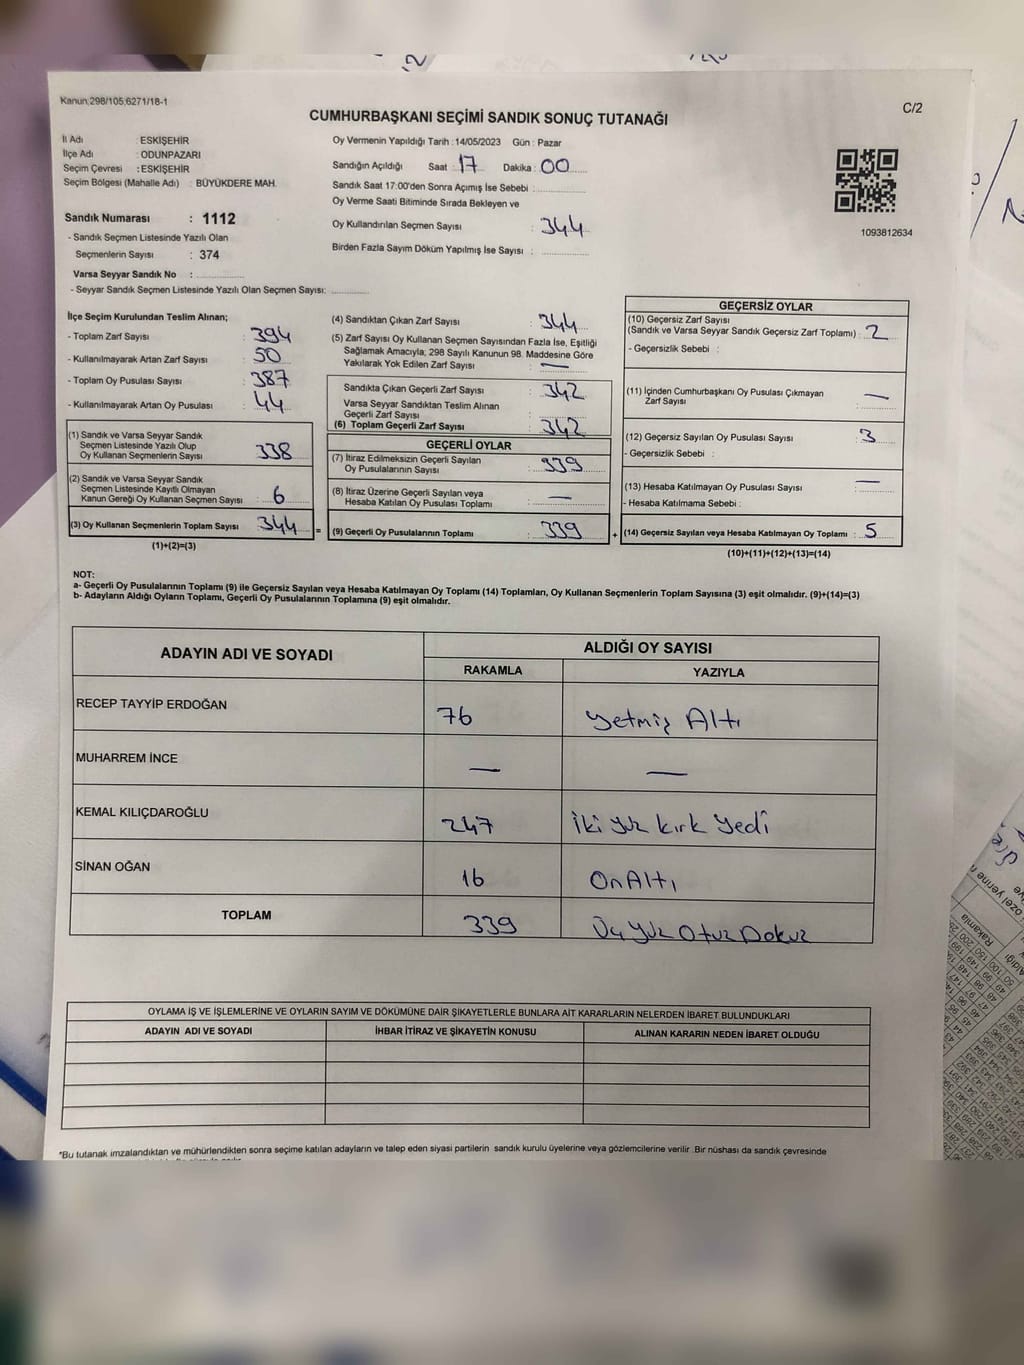 Kanun;298/105;6271/18-1
C/2
CUMHURBAŞKANI SEÇİMİ SANDIK SONUÇ TUTANAĞI
İl Adı : ESKİŞEHİR
İlçe Adı : ODUNPAZARI
Seçim Çevresi : ESKİŞEHİR
Seçim Bölgesi (Mahalle Adı) : BÜYÜKDERE MAH.
Sandık Numarası : 1112
- Sandık Seçmen Listesinde Yazılı Olan
Seçmenlerin Sayısı : 374
Varsa Seyyar Sandık No :
- Seyyar Sandık Seçmen Listesinde Yazılı Olan Seçmen Sayısı:
Oy Vermenin Yapıldığı Tarih : 14/05/2023 Gün : Pazar
Sandığın Açıldığı Saat 17 Dakika : 00
Sandık Saat 17:00'den Sonra Açımış İse Sebebi :
Oy Verme Saati Bitiminde Sırada Bekleyen ve
Oy Kullandırılan Seçmen Sayısı : 344
Birden Fazla Sayım Döküm Yapılmış İse Sayısı :
1093812634
İlçe Seçim Kurulundan Teslim Alınan;
- Toplam Zarf Sayısı : 394
- Kullanılmayarak Artan Zarf Sayısı : 50
- Toplam Oy Pusulası Sayısı : 387
- Kullanılmayarak Artan Oy Pusulası : 44
(1) Sandık ve Varsa Seyyar Sandık
Seçmen Listesinde Yazılı Olup
Oy Kullanan Seçmenlerin Sayısı 338
(2) Sandık ve Varsa Seyyar Sandık
Seçmen Listesinde Kayıtlı Olmayan
Kanun Gereği Oy Kullanan Seçmen Sayısı 6
(3) Oy Kullanan Seçmenlerin Toplam Sayısı 344 =
(1)+(2)=(3)
(4) Sandıktan Çıkan Zarf Sayısı : 344
(5) Zarf Sayısı Oy Kullanan Seçmen Sayısından Fazla İse, Eşitliği
Sağlamak Amacıyla; 298 Sayılı Kanunun 98. Maddesine Göre
Yakılarak Yok Edilen Zarf Sayısı : —
Sandıkta Çıkan Geçerli Zarf Sayısı : 342
Varsa Seyyar Sandıktan Teslim Alınan
Geçerli Zarf Sayısı :
(6) Toplam Geçerli Zarf Sayısı : 342
GEÇERLİ OYLAR
(7) İtiraz Edilmeksizin Geçerli Sayılan
Oy Pusulalarının Sayısı : 339
(8) İtiraz Üzerine Geçerli Sayılan veya
Hesaba Katılan Oy Pusulası Toplamı : —
(9) Geçerli Oy Pusulalarının Toplamı : 339 +
GEÇERSİZ OYLAR
(10) Geçersiz Zarf Sayısı
(Sandık ve Varsa Seyyar Sandık Geçersiz Zarf Toplamı) : 2
- Geçersizlik Sebebi :
(11) İçinden Cumhurbaşkanı Oy Pusulası Çıkmayan
Zarf Sayısı : —
(12) Geçersiz Sayılan Oy Pusulası Sayısı : 3
- Geçersizlik Sebebi :
(13) Hesaba Katılmayan Oy Pusulası Sayısı : —
- Hesaba Katılmama Sebebi :
(14) Geçersiz Sayılan veya Hesaba Katılmayan Oy Toplamı : 5
(10)+(11)+(12)+(13)=(14)
NOT:
a- Geçerli Oy Pusulalarının Toplamı (9) ile Geçersiz Sayılan veya Hesaba Katılmayan Oy Toplamı (14) Toplamları, Oy Kullanan Seçmenlerin Toplam Sayısına (3) eşit olmalıdır. (9)+(14)=(3)
b- Adayların Aldığı Oyların Toplamı, Geçerli Oy Pusulalarının Toplamına (9) eşit olmalıdır.
ADAYIN ADI VE SOYADI ALDIĞI OY SAYISI
RAKAMLA YAZIYLA
RECEP TAYYİP ERDOĞAN 76 Yetmiş Altı
MUHARREM İNCE — —
KEMAL KILIÇDAROĞLU 247 İki yüz kırk yedi
SİNAN OĞAN 16 On Altı
TOPLAM 339 Üç Yüz Otuz Dokuz
OYLAMA İŞ VE İŞLEMLERİNE VE OYLARIN SAYIM VE DÖKÜMÜNE DAİR ŞİKAYETLERLE BUNLARA AİT KARARLARIN NELERDEN İBARET BULUNDUKLARI
ADAYIN ADI VE SOYADI İHBAR İTİRAZ VE ŞİKAYETİN KONUSU ALINAN KARARIN NEDEN İBARET OLDUĞU
*Bu tutanak imzalandıktan ve mühürlendikten sonra seçime katılan adayların ve talep eden siyasi partilerin sandık kurulu üyelerine veya gözlemcilerine verilir. Bir nüshası da sandık çevresinde